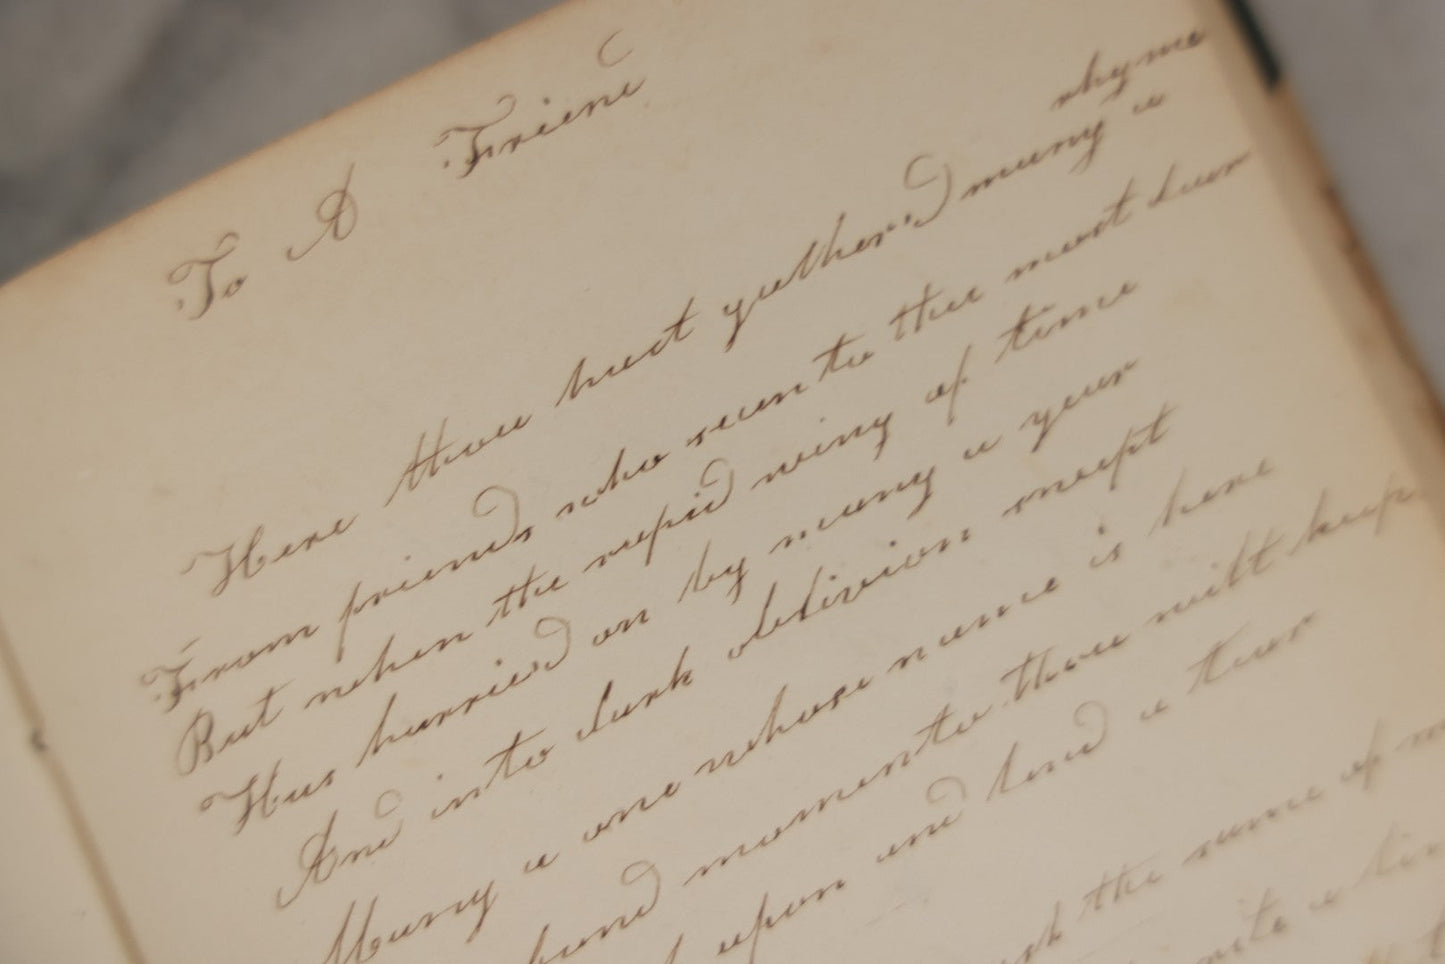 To A Friend
Here thou hast gather'd many a rhyme
From friends who seem to thee most dear
But when the rapid wing of time
Has hurried on by many a year
And into dark oblivion swept
Many a one whose name is here
fond momento thou wilt keep
upon and lend a tear
the name of
write a